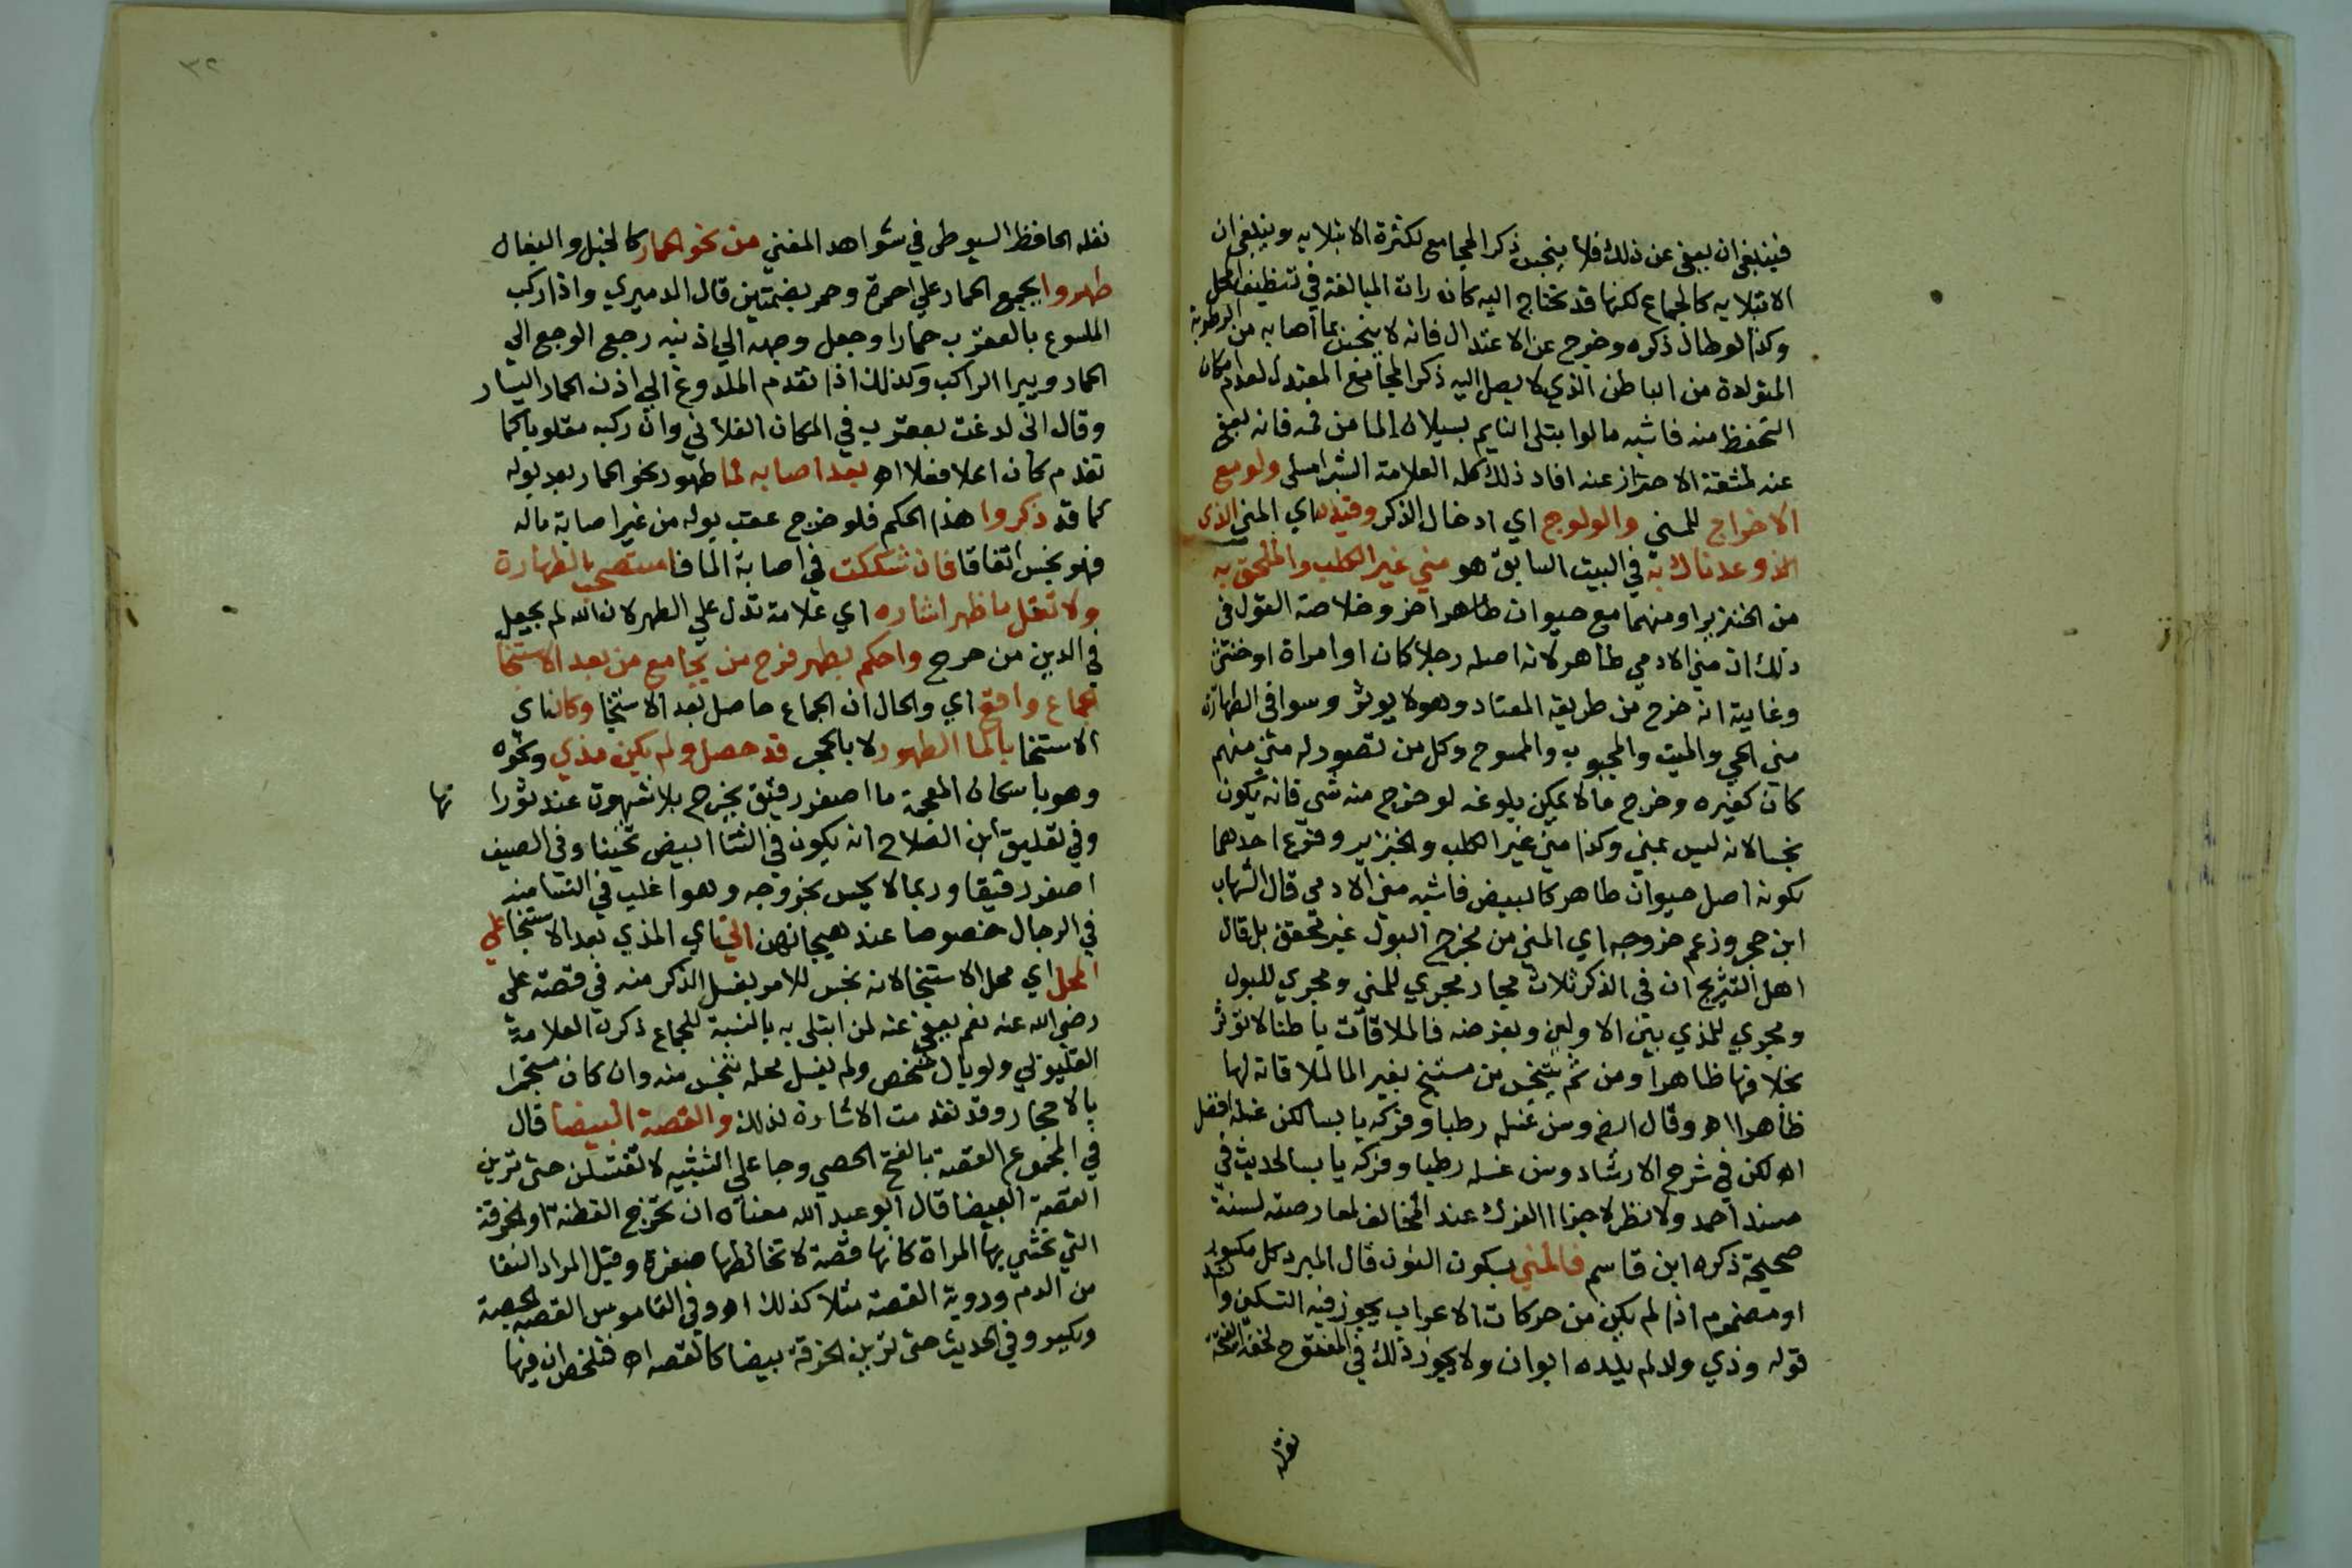 فينبغي ان يعفى عن ذلك فلا ينجس ذكر المجامع لكثرة الابتلا به وينبغي ان
الابتلا به كالجماع لكنها قد تحتاج اليه كان رات المبالغة في تنظيف المحل
وكذا لو طال ذكره وخرج عن الاعتدال فانه لا ينجس بما أصابه من الرطوبة
المتولدة من الباطن الذي لا يصل اليه ذكر المجامع المعتدل لعدم امكان
التحفظ منه فاشبه ما لو ابتلى النايم بسيلان الما من فمه فانه يعفى
عنه لمشقة الاحتراز عنه افاد ذلك كله العلامة الشبراملسي ولو مع
الاخراج للمني والولوج اي ادخال الذكر وقيد اي المني الذي
عدناك به في البيت السابق هو مني غير الكلب والملحق به
من الخنزير او منهما مع حيوان طاهر اخر وخلاصة القول في
ذلك ان مني الادمي طاهر لانه اصله رجلا كان او امراة او خنثى
وغايته انه خرج من طريقه المعتاد وهو لا يوثر وسوا في الطهارة
مني الحي والميت والمجبوب والممسوح وكل من تصور له مني منهم
كان كغيره وخرج ما لا يمكن بلوغه لو خرج منه شي فانه يكون
نجسا لانه ليس بمني وكذا مني غير الكلب والخنزير وفرع احدهما
لكونه اصل حيوان طاهر كالبيض فاشبه مني الادمي قال الشهاب
ابن حجر وزعم خروجه اي المني من مخرج البول غير محقق بل قال
اهل التشريح ان في الذكر ثلاث مجار مجري للمني ومجري للبول
ومجري للمذي بين الاولين وبفرضه فالملاقات باطنا لا توثر
بخلافها ظاهرا ومن ثم يتنجس من مستنج بغير الما لملاقاته لها
ظاهرا اه وقال ايضا وسن غسله رطبا وفركه يابسا لكن غسله افضل
اه لكن في شرح الارشاد وسن غسله رطبا وفركه يابسا لحديث في
مسند احمد ولا نظر لاجزا الفرك عند المخالف لمعارضته لسنة
صحيحة ذكره ابن قاسم فالمني بسكون النون قال المبرد كل مكسور
او مضموم اذا لم يكن من حركات الاعراب يجوز فيه التسكين وانشد
قوله وذي ولد لم يلده ابوان ولا يجوز ذلك في المفتوح لخفة الفتحة
نقله
٣٢
نقله الحافظ السيوطي في شواهد المغني من نحو الحمار كالخيل والبغال
طهروا يجمع الحمار علي احمرة وحمر بضمتين قال الدميري واذا ركب
الملسوع بالعقرب حمارا وجعل وجهه الي اذنيه رجع الوجع الي
الحمار ويبرا الراكب وكذلك اذا تقدم الملدوغ الي اذن الحمار اليسار
وقال اني لدغت بعقرب في المكان الفلاني وان ركبه مقلوبا كما
تقدم كان اعلا فعلا اه بعد اصابه لما طهور نحو الحمار بعد بوله
كما قد ذكروا هذا الحكم فلو خرج عقب بوله من غير اصابة ماله
فهو نجس اتفاقا فان شككت في اصابة الما فاستصحب الطهارة
ولا تقل ما ظهر اشاره اي علامة تدل علي الطهر لان الله لم يجعل
في الدين من حرج واحكم بطهر فرج من يجامع من بعد الاستنجا
جماع واقع اي والحال ان الجماع حاصل بعد الاستنجا وكان اي
الاستنجا بالما الطهور لا بالحجر قد حصل ولم يكن مذي ونحوه
وهو باسكان المعجمة ما اصفر رقيق يخرج بلا شهوت عند ثورا نها
وفي تعليق ابن الصلاح انه يكون في الشتا ابيض ثخينا وفي الصيف
اصفر رقيقا وربما لا يحس بخروجه وهو اغلب في النسا منه
في الرجال خصوصا عند هيجانهن اتي اي المذي بعد الاستنجا علي
المحل اي محل الاستنجا لانه نجس للامر بغسل الذكر منه في قصة علي
رضي الله عنه نعم يعفى عنه لمن ابتلي به بالنسبة للجماع ذكره العلامة
القليوبي ولو بال شخص ولم يغسل محله تنجس منه وان كان مستجمرا
بالاحجار وقد تقدمت الاشارة لذلك والقصة البيضا قال
في المجموع القصة بالفتح الجص وجا علي التشبيه لا تغتسلن حتى ترين
القصة البيضا قال ابو عبد الله معناه ان تخرج القطنة او الخرقة
التي تحتشي بها المراة كانها قصة لا تخالطها صفرة وقيل المراد النقا
من الدم وروية القصة مثلا كذلك اه وفي القاموس القصة الجصة
ويكسر وفي الحديث حتى ترين الخرقة بيضا كالقصة اه فتلخص ان فيها